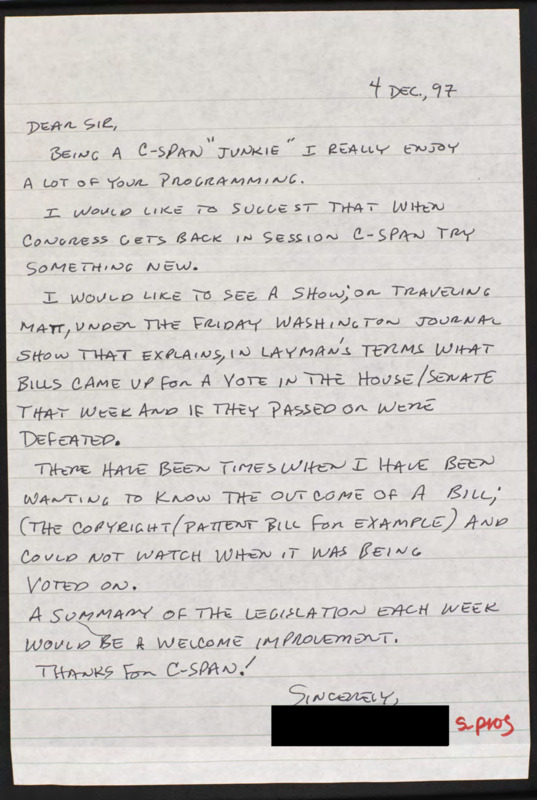 4 DEC., 97
DEAR SIR,
BEING A C-SPAN "JUNKIE" I REALLY ENJOY
A LOT OF YOUR PROGRAMMING.
I WOULD LIKE TO SUGGEST THAT WHEN
CONGRESS GETS BACK IN SESSION C-SPAN TRY
SOMETHING NEW.
I WOULD LIKE TO SEE A SHOW; OR TRAVELING
MATT, UNDER THE FRIDAY WASHINGTON JOURNAL
SHOW THAT EXPLAINS, IN LAYMAN'S TERMS WHAT
BILLS CAME UP FOR A VOTE IN THE HOUSE/SENATE
THAT WEEK AND IF THEY PASSED OR WERE
DEFEATED.
THERE HAVE BEEN TIMES WHEN I HAVE BEEN
WANTING TO KNOW THE OUTCOME OF A BILL;
(THE COPYRIGHT/PATTENT BILL FOR EXAMPLE) AND
COULD NOT WATCH WHEN IT WAS BEING
VOTED ON.
A SUMMARY OF THE LEGISLATION EACH WEEK
WOULD BE A WELCOME IMPROVEMENT.
THANKS FOR C-SPAN!
SINCERELY,